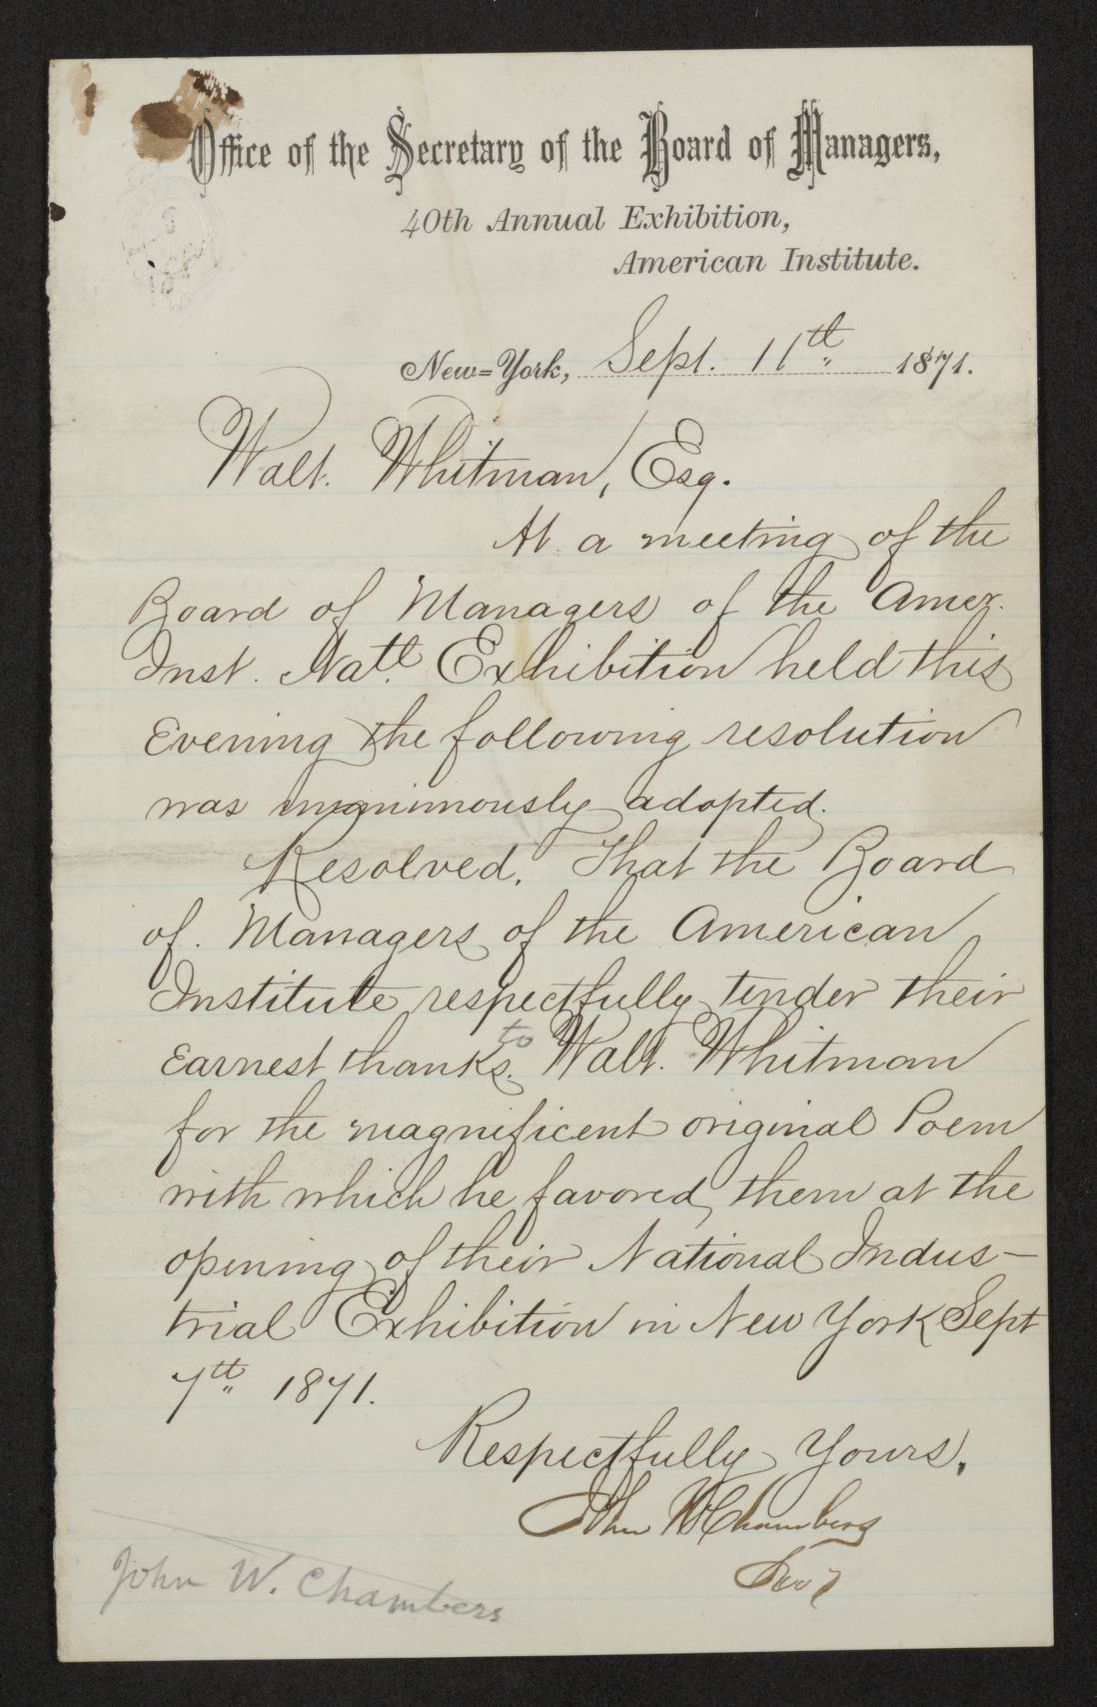 Office of the Secretary of the Board of Managers,
40th Annual Exhibition,
American Institute.
New=York, Sept. 11th 1871.
Walt. Whitman, Esq.
At a meeting of the
Board of Managers of the Amer.
Inst. Natl. Exhibition held this
Evening the following resolution
was unanimously adopted.
Resolved. That the Board
of. Managers of the American
Institute respectfully tender their
Earnest thanks. to Walt. Whitman
for the magnificent original Poem
with which he favored them at the
opening of their National Indus-
trial Exhibition in New York Sept
7th 1871.
Respectfully Yours,
John W Chambers
Secy
John W. Chambers